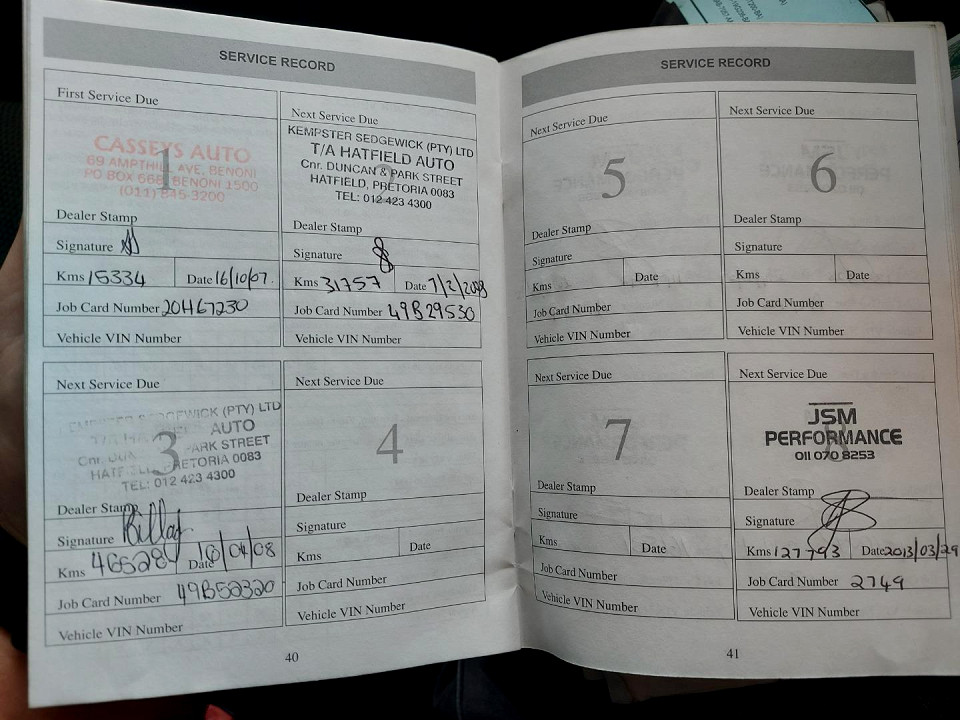 SERVICE RECORD
First Service Due
CASSEYS AUTO
69 AMPTHILL AVE, BENONI
PO BOX 668 BENONI 1500
(011) 845-3200
1
Dealer Stamp
Signature
Kms 15334 Date 16/10/07
Job Card Number 20H67230
Vehicle VIN Number
Next Service Due
KEMPSTER SEDGEWICK (PTY) LTD
T/A HATFIELD AUTO
Cnr. DUNCAN & PARK STREET
HATFIELD, PRETORIA 0083
TEL: 012 423 4300
Dealer Stamp
Signature
Kms 31757 Date 7/2/2008
Job Card Number 49B29530
Vehicle VIN Number
Next Service Due
KEMPSTER SEDGEWICK (PTY) LTD
T/A HATFIELD AUTO
Cnr. DUNCAN & PARK STREET
HATFIELD, PRETORIA 0083
TEL: 012 423 4300
3
Dealer Stamp
Signature
Kms 46528 Date /04/08
Job Card Number 49B52320
Vehicle VIN Number
Next Service Due
4
Dealer Stamp
Signature
Kms Date
Job Card Number
Vehicle VIN Number
40
SERVICE RECORD
Next Service Due
5
Dealer Stamp
Signature
Kms Date
Job Card Number
Vehicle VIN Number
Next Service Due
6
Dealer Stamp
Signature
Kms Date
Job Card Number
Vehicle VIN Number
Next Service Due
7
Dealer Stamp
Signature
Kms Date
Job Card Number
Vehicle VIN Number
Next Service Due
JSM
PERFORMANCE
011 070 8253
8
Dealer Stamp
Signature
Kms 127793 Date 2013/03/29
Job Card Number 2749
Vehicle VIN Number
41